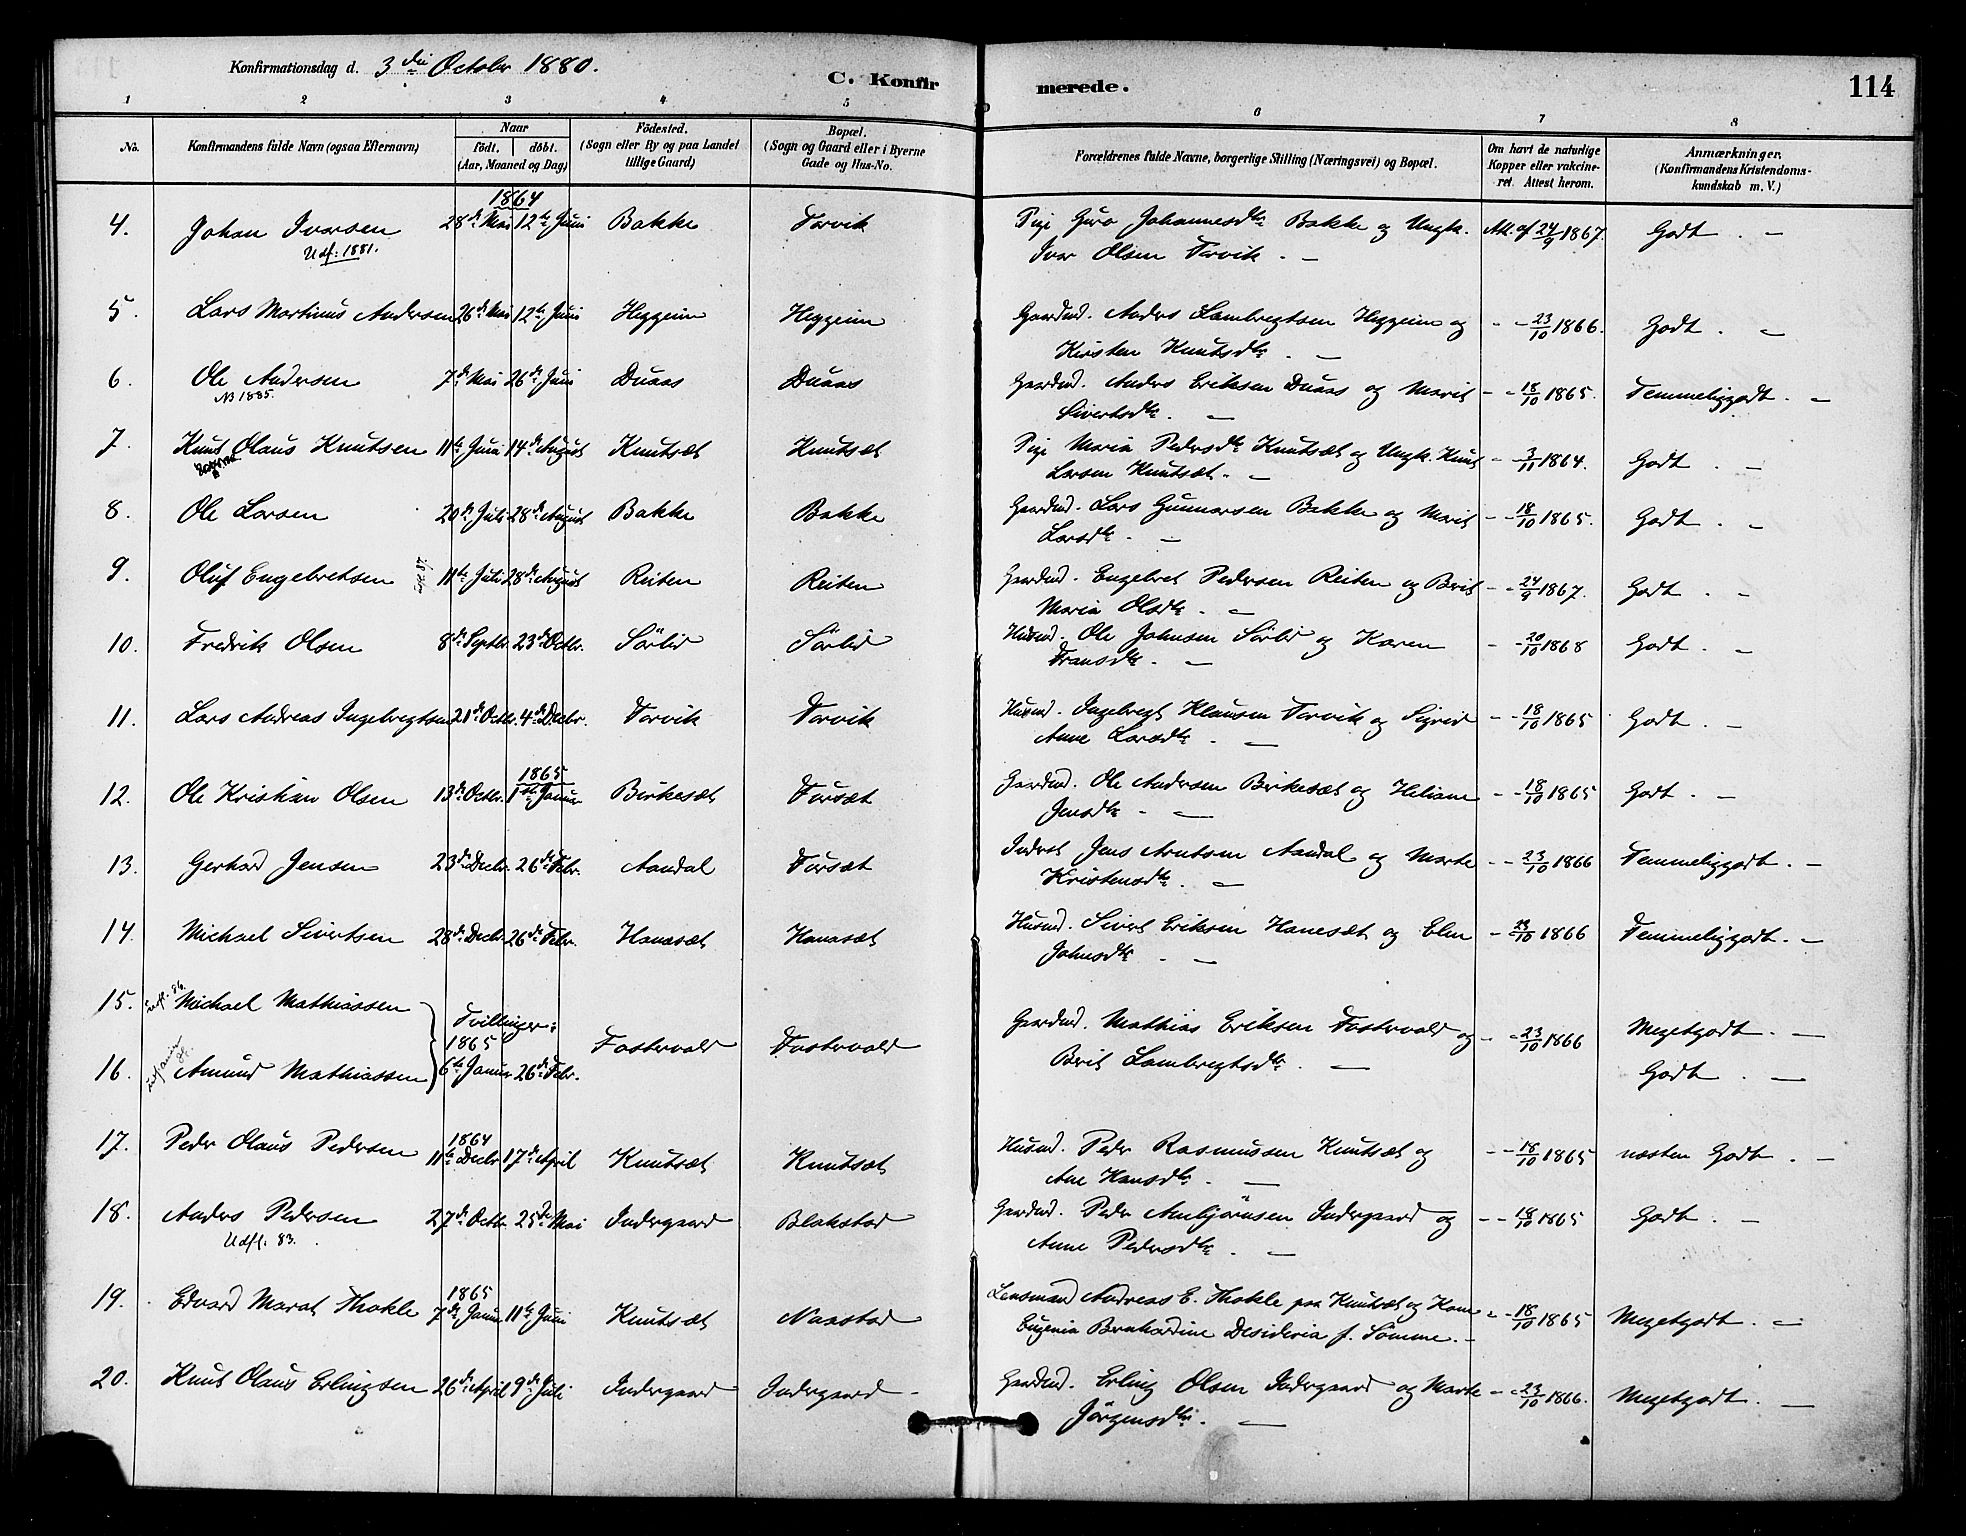 Konfirmationsdag d. 3die October 1880.
C. Konfirmerede.
114
1 2 3 4 5 6 7 8
No. Konfirmandens fulde Navn (ogsaa Efternavn) Naar födt. döbt. (Aar, Maaned og Dag) Födested. (Sogn eller By og paa Landet tillige Gaard) Bopæl. (Sogn og Gaard eller i Byerne Gade og Hus-No. Forældrenes fulde Navne, borgerlige Stilling (Næringsvei) og Bopæl. Om havt de naturlige Kopper eller vakcineret. Attest herom. Anmærkninger. (Konfirmandens Kristendomskundskab m. V.)
1864
4. Johan Iversen 28de Mai 12te Juni Bakke Torvik Pige Guro Johannesdtr Bakke og Ungk. Att. af 24/9 1867. Godt. –
Udf: 1881. Iver Olsen Torvik. –
5. Lars Martinus Andersen 26de Mai 12te Juni Heggeim Heggeim Gaardmd. Anders Lambregtsen Heggeim og - - 23/10 1866. Godt. –
Kirsten Knutsdtr. –
6. Ole Andersen 7de Mai 26de Juni Duaas Duaas Gaardmd. Anders Eriksen Duaas og Marit - - 18/10 1865. Temmeliggodt. –
NB 1885. Sivertsdtr. –
7. Knut Olaus Knutsen 11te Juni 14de August Knutsæt Knutsæt Pige Maria Pedersdtr Knutsæt og Ungk. Knut - - 3/11 1864. Godt. –
Larsen Knutsæt. –
8. Ole Larsen 20de Juli 28de August Bakke Bakke Gaardmd. Lars Gunnarsen Bakke og Marit - - 18/10 1865. Godt. –
Larsdtr. –
9. Oluf Engebretsen 11te Juli 28de August Reiten Reiten Gaardmd. Engebret Pedersen Reiten og Berit - - 24/9 1867. Godt. –
Maria Olsdtr. –
10. Fredrik Olsen 8de Septbr. 23de Octbr. Sörlid Sörlid Husmd. Ole Johnsen Sörlid og Karen - - 20/10 1868 Godt. –
Fransdtr. –
11. Lars Andreas Ingebregtsen 21de Octbr. 4de Decbr. Torvik Torvik Husmd. Ingebregt Klausen Torvik og Sigrid - - 18/10 1865 Godt. –
Anne Larsdtr. –
1865
12. Ole Kristian Olsen 13de Octbr. 1ste Januar Birkesæt Torsæt Gaardmd. Ole Andersen Birkesæt og Heliane - - 18/10 1865 Godt. –
Jensdtr. –
13. Gerhard Jensen 23de Decbr. 26de Febr. Aandal Torsæt Inderst Jens Arntsen Aandal og Marte - - 23/10 1866 Temmeliggodt. –
Kristensdtr. –
14. Michael Sivertsen 28de Decbr. 26de Febr. Hanasæt Hanasæt Husmd. Sivert Eriksen Hanesæt og Elen - 23/10 1866 Temmeliggodt. –
Johnsdtr. –
15. Michael Mathiassen Tvillinger: 1865 Fostervold Fostervold Gaardmd. Mathias Eriksen Fostervold og - - 23/10 1866 Megetgodt. –
16. Amund Mathiassen 6te Januar 26de Febr. Berit Lambregtsdtr. – Godt. –
1864
17. Peder Olaus Pedersen 11te Decbr. 17de April Knutsæt Knutsæt Husmd. Peder Rasmussen Knutsæt og - - 18/10 1865 næsten Godt. –
Ane Hansdtr. –
18. Anders Pedersen 27de Octbr. 25de Mai Indergaard Blakstad Gaardmd. Peder Anbjörnsen Indergaard og - - 18/10 1865 Godt. –
Udfl: 83. Anne Pedersdtr. –
1865
19. Edvard Marat Thokle 7de Januar 11te Juni Knutsæt Naastad Lensmand Andreas E. Thokle paa Knutsæt og Kone - - 18/10 1865 Megetgodt. –
Eugenia Bernhardine Desideria f. Sömme. –
20. Knut Olaus Erlingsen 26de April 9de Juli Indergaard Indergaard Gaardmd. Erling Olsen Indergaard og Marte - - 23/10 1866. Megetgodt. –
Jörgensdtr. –